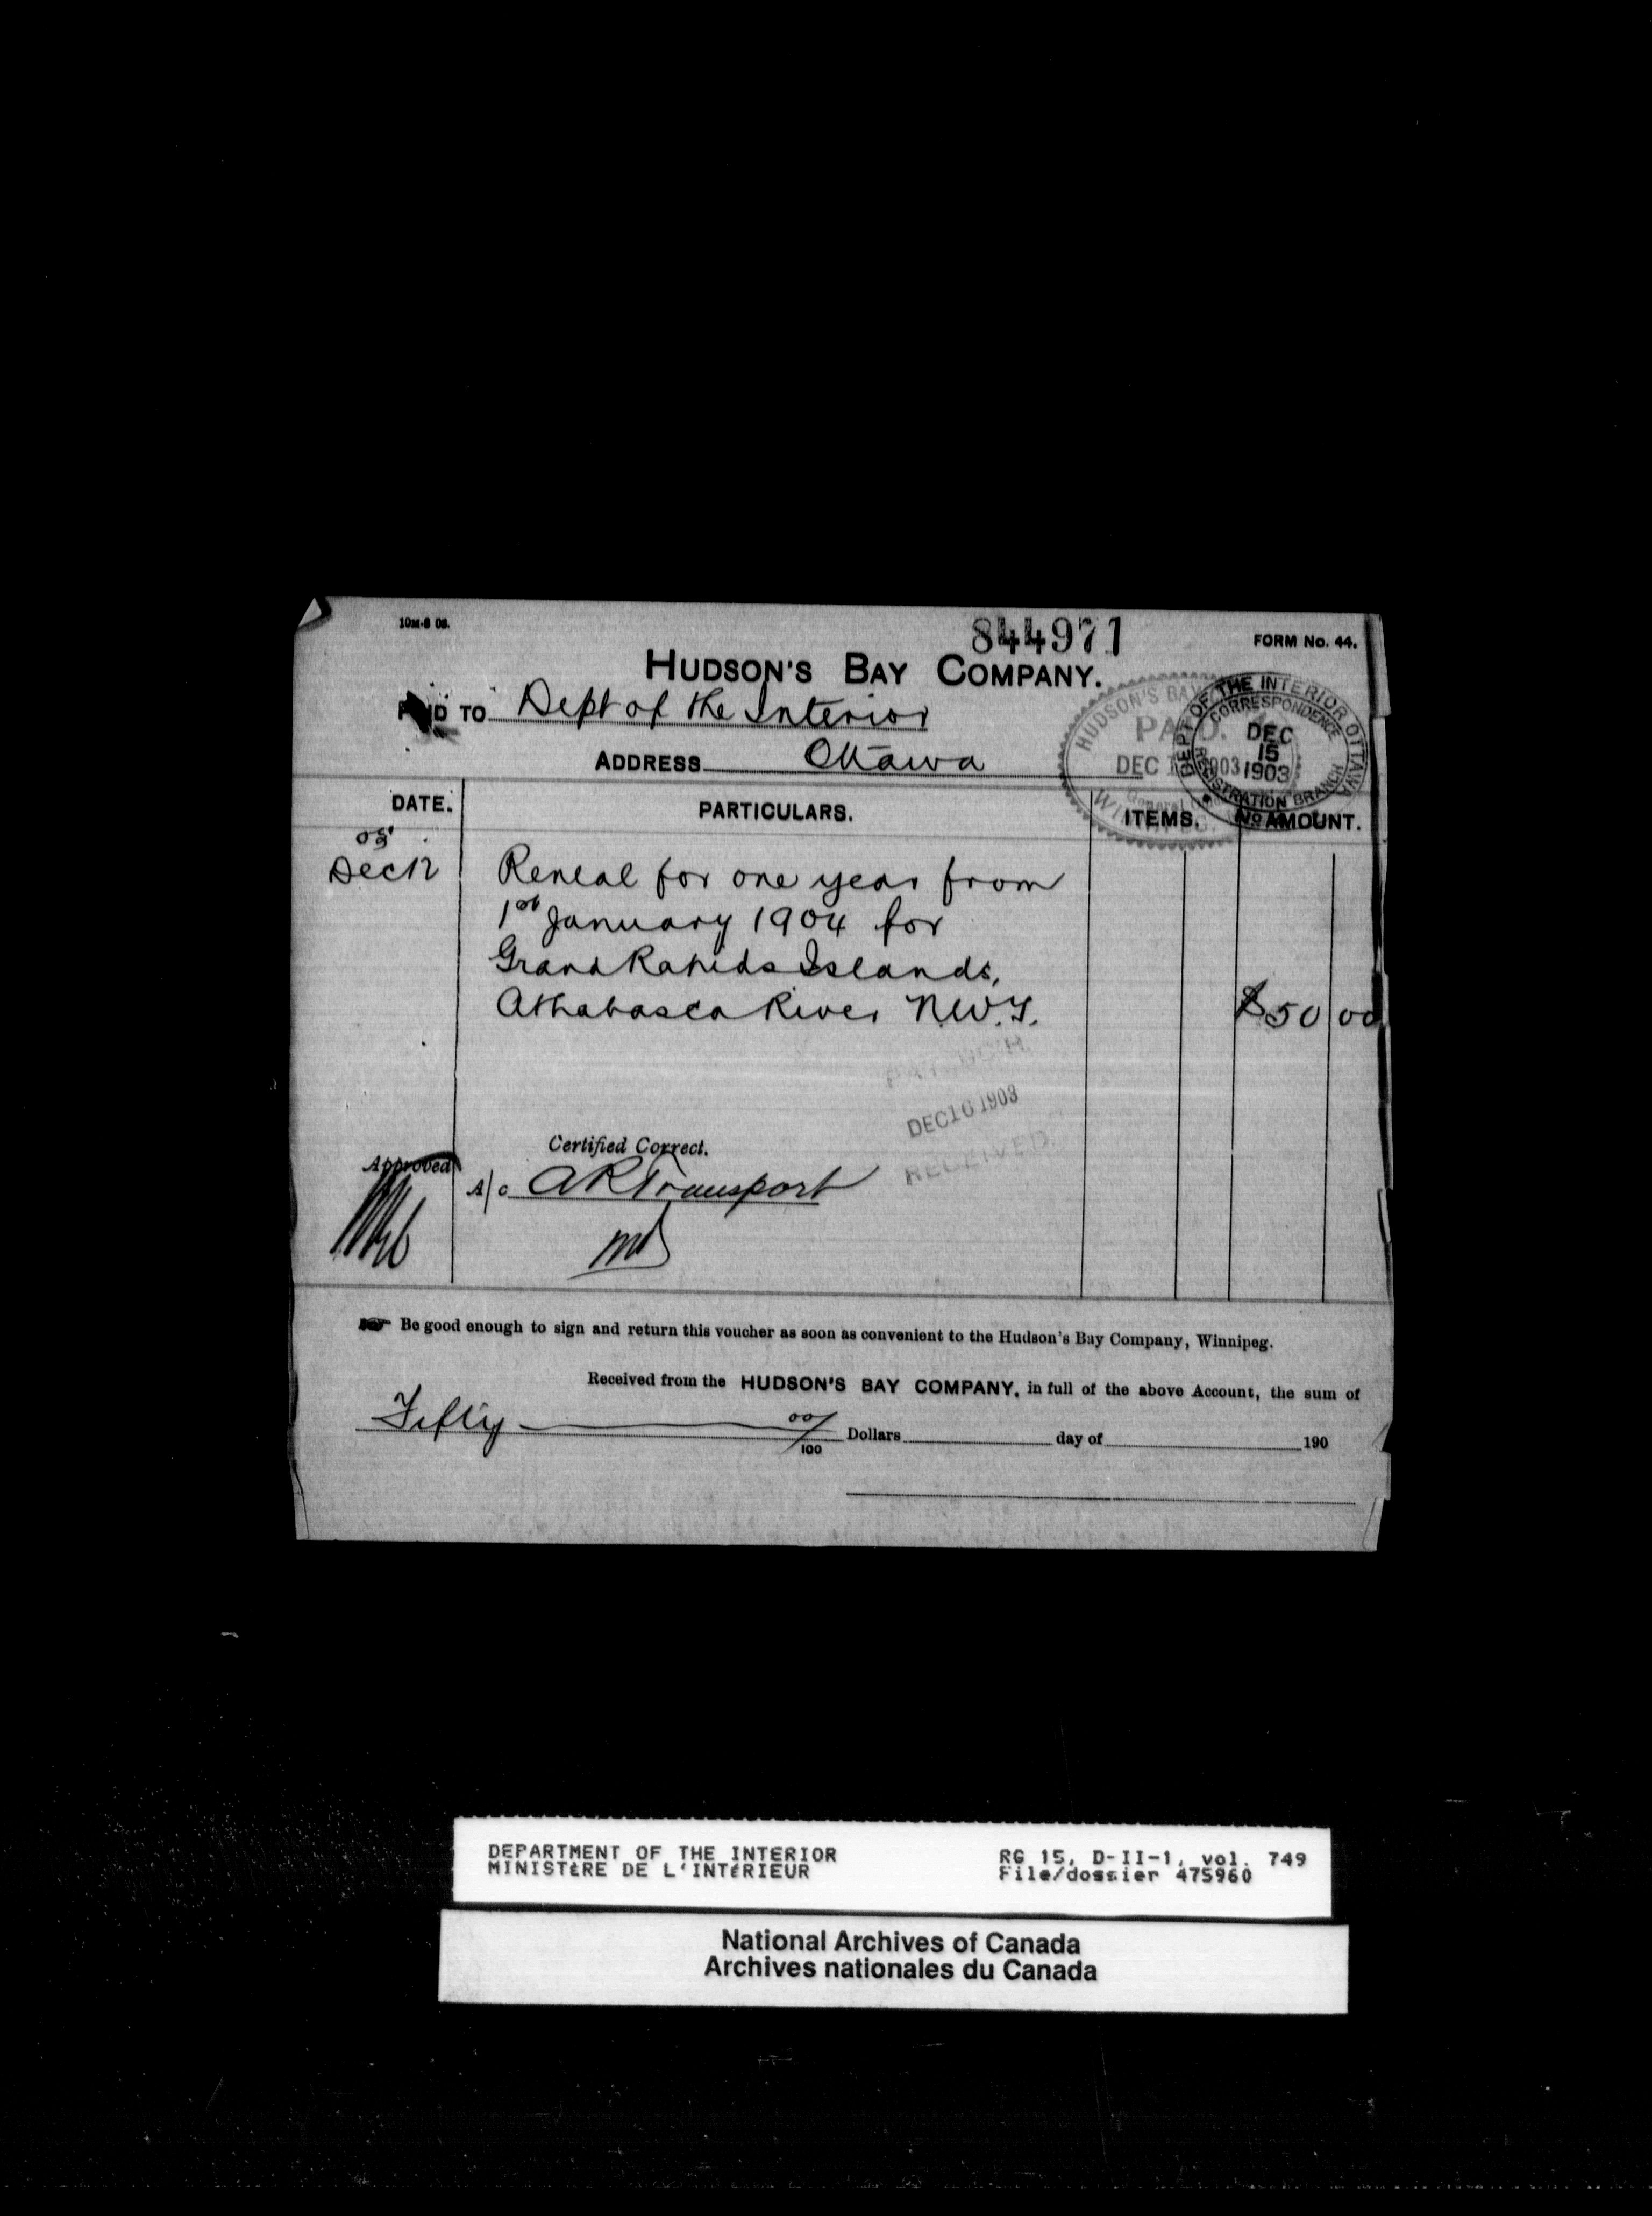 10M-8 03.
844971
FORM No. 44.
HUDSON'S BAY COMPANY.
PAID TO Dept of the Interior
ADDRESS Ottawa
HUDSON'S BAY
PAID.
DEC 1903
General
DEPT OF THE INTERIOR OTTAWA
CORRESPONDENCE
DEC
15
1903
REGISTRATION BRANCH
No
DATE. PARTICULARS. ITEMS. AMOUNT.
03
Dec 12 Rental for one year from
1st January 1904 for
Grand Rapids Islands,
Athabasca River N.W.T. $50 00
DEC 16 1903
RECEIVED
Certified Correct.
Approved
A/c AR Transport
Be good enough to sign and return this voucher as soon as convenient to the Hudson's Bay Company, Winnipeg.
Received from the HUDSON'S BAY COMPANY, in full of the above Account, the sum of
Fifty 00/100 Dollars day of 190
DEPARTMENT OF THE INTERIOR
MINISTÈRE DE L'INTÉRIEUR
RG 15, D-II-1, vol. 749
File/dossier 475960
National Archives of Canada
Archives nationales du Canada